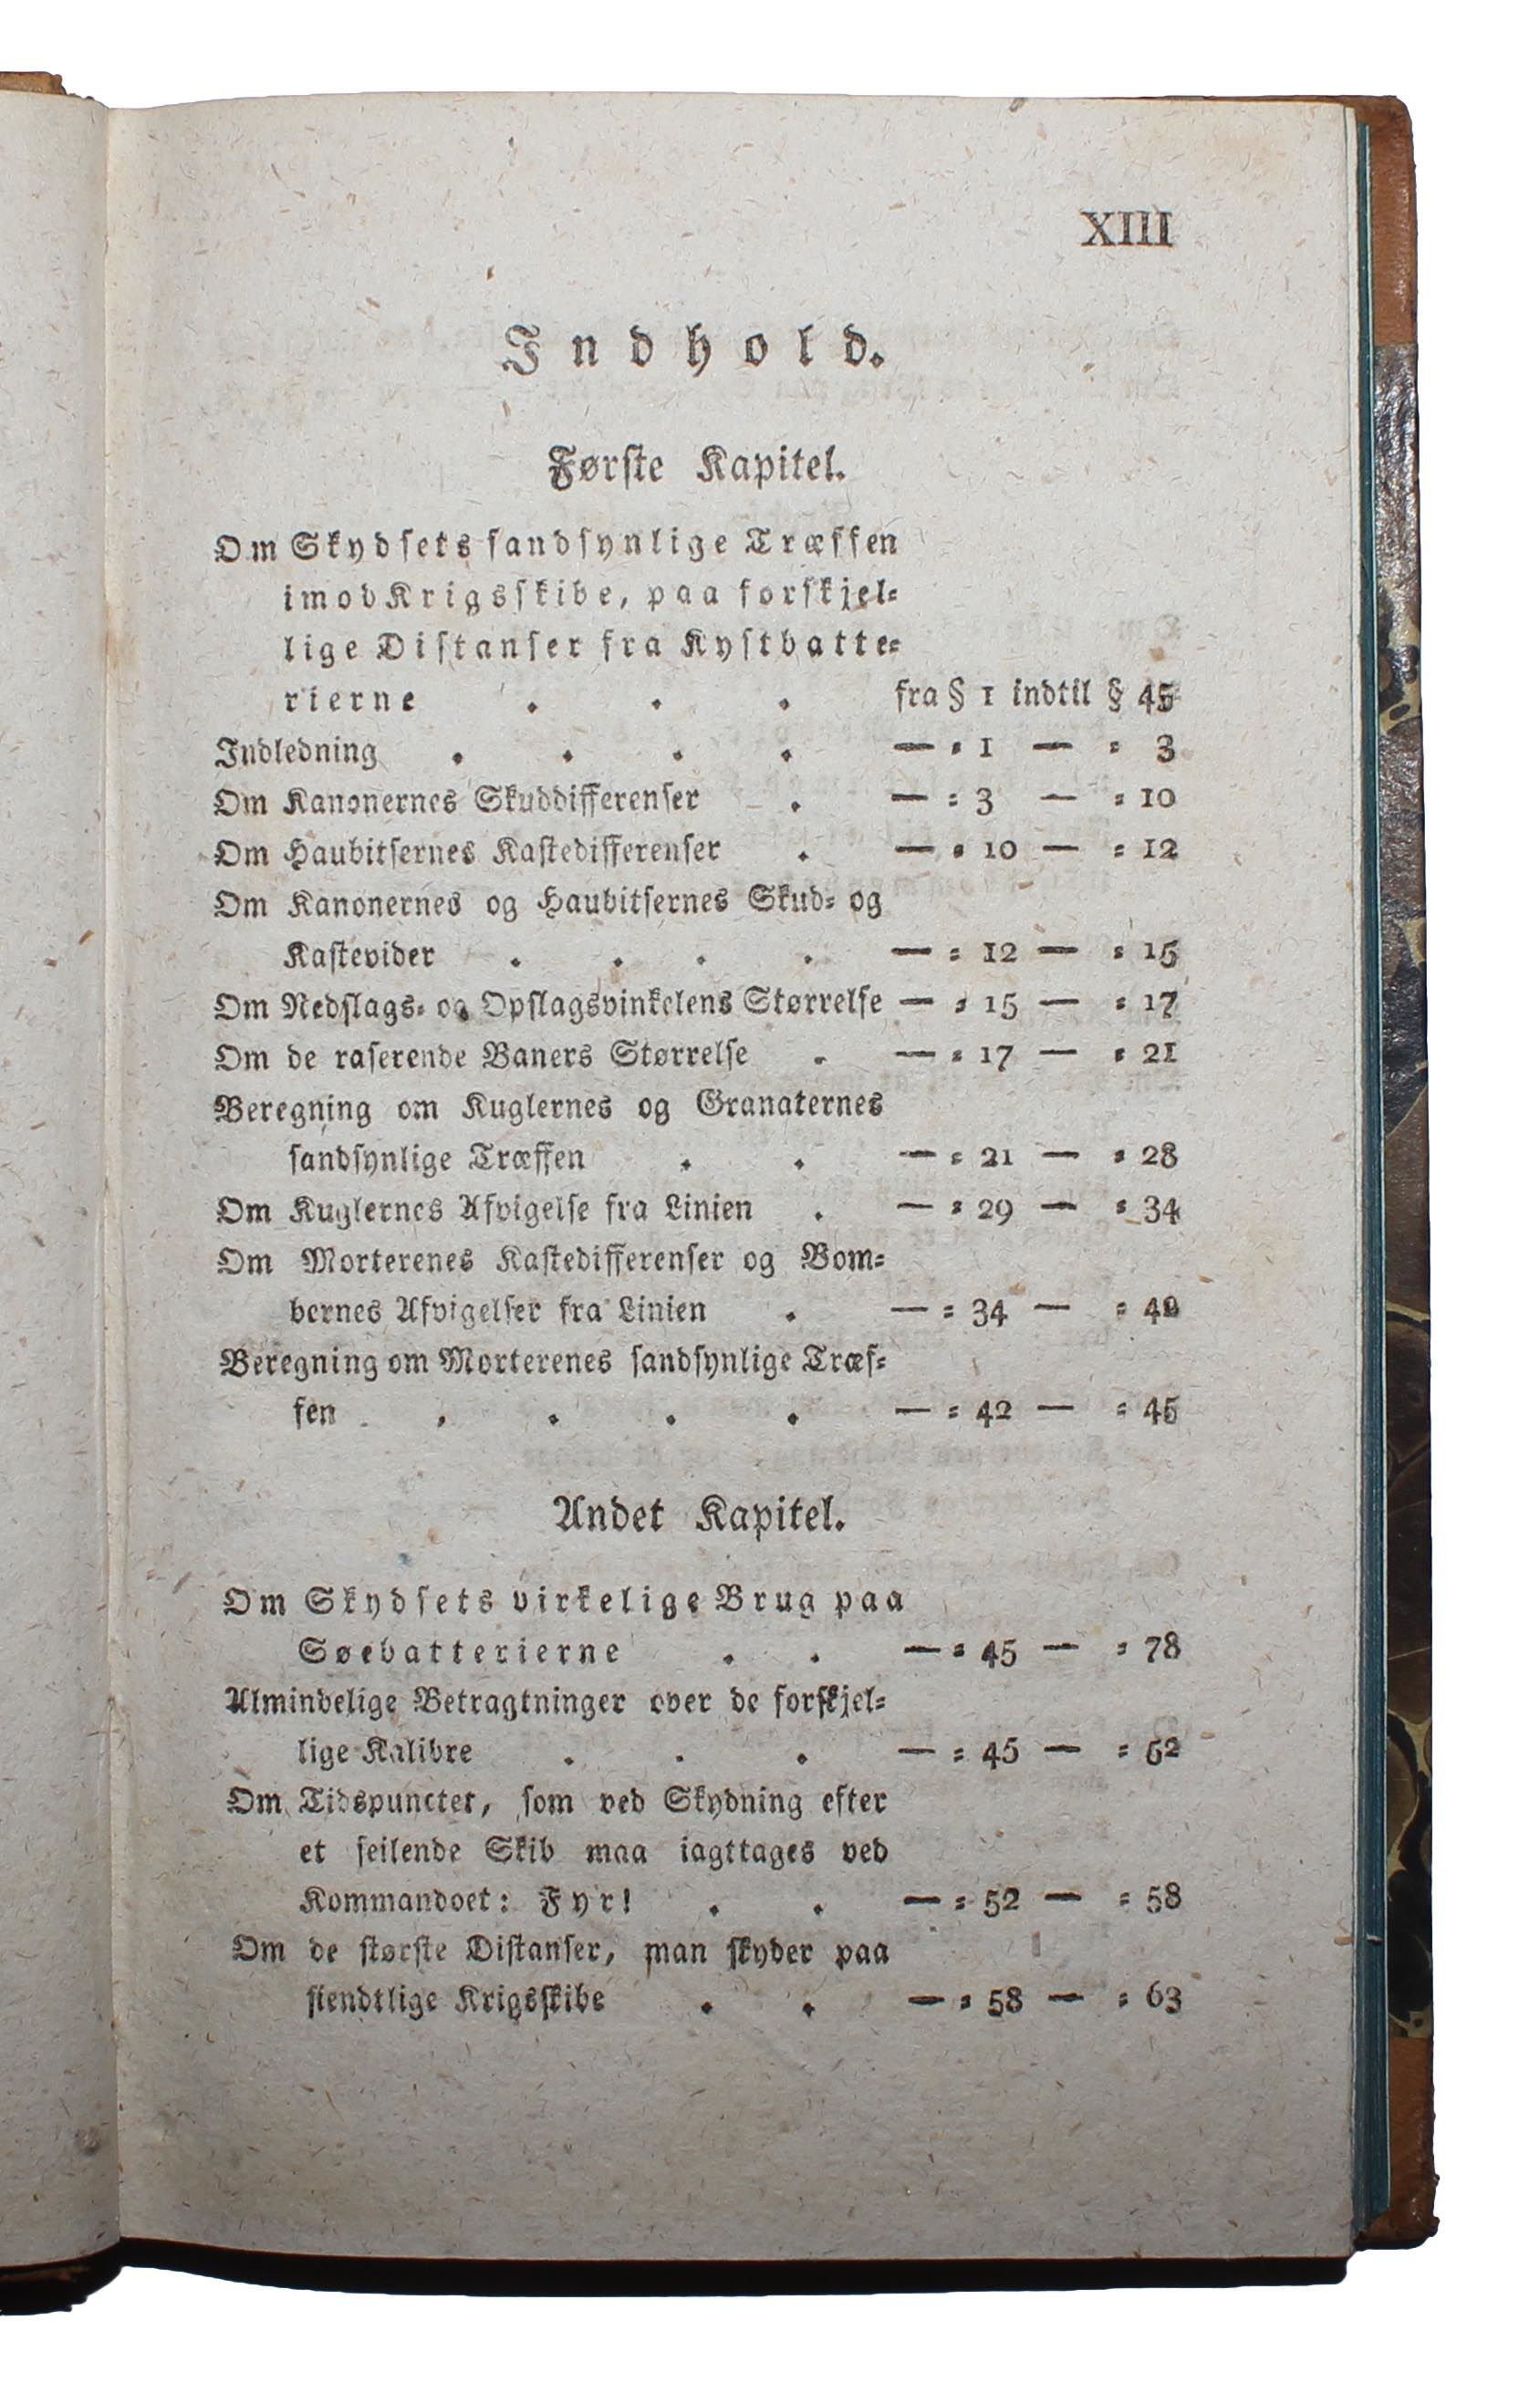 XIII
Indhold.
Første Kapitel.
Om Skydsets sandsynlige Træffen
imod Krigsskibe, paa forskjel=
lige Distanser fra Kystbatte=
rierne . . . fra § 1 indtil § 45
Indledning . . . . — = 1 — = 3
Om Kanonernes Skuddifferenser . — = 3 — = 10
Om Haubitsernes Kastedifferenser . — = 10 — = 12
Om Kanonernes og Haubitsernes Skud= og
Kastevider . . . . — = 12 — = 15
Om Nedslags= og Opslagsvinkelens Størrelse — = 15 — = 17
Om de raserende Baners Størrelse . — = 17 — = 21
Beregning om Kuglernes og Granaternes
sandsynlige Træffen . . — = 21 — = 28
Om Kuglernes Afvigelse fra Linien . — = 29 — = 34
Om Morterenes Kastedifferenser og Bom=
bernes Afvigelser fra Linien . — = 34 — =
Beregning om Morterenes sandsynlige Træf=
fen . . . . — = 42 — = 45
Andet Kapitel.
Om Skydsets virkelige Brug paa
Søebatterierne . . — = 45 — = 78
Almindelige Betragtninger over de forskjel=
lige Kalibre . . . — = 45 — = 52
Om Tidspunctet, som ved Skydning efter
et seilende Skib maa iagttages ved
Kommandoet: Fyr! . . — = 52 — = 58
Om de største Distanser, man skyder paa
fiendtlige Krigsskibe . . — = 58 — = 63